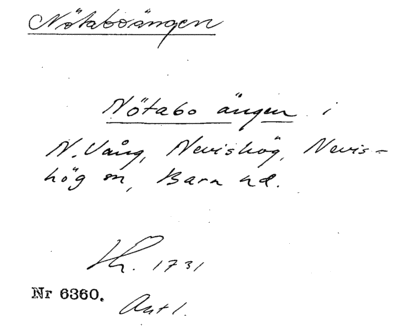 Nötaboängen
Nötabo ängen i
N. Vång, Nevishög, Nevis=
hög sn, Bara hd.
Lh. 1731
Nr 6360. Ant 1.